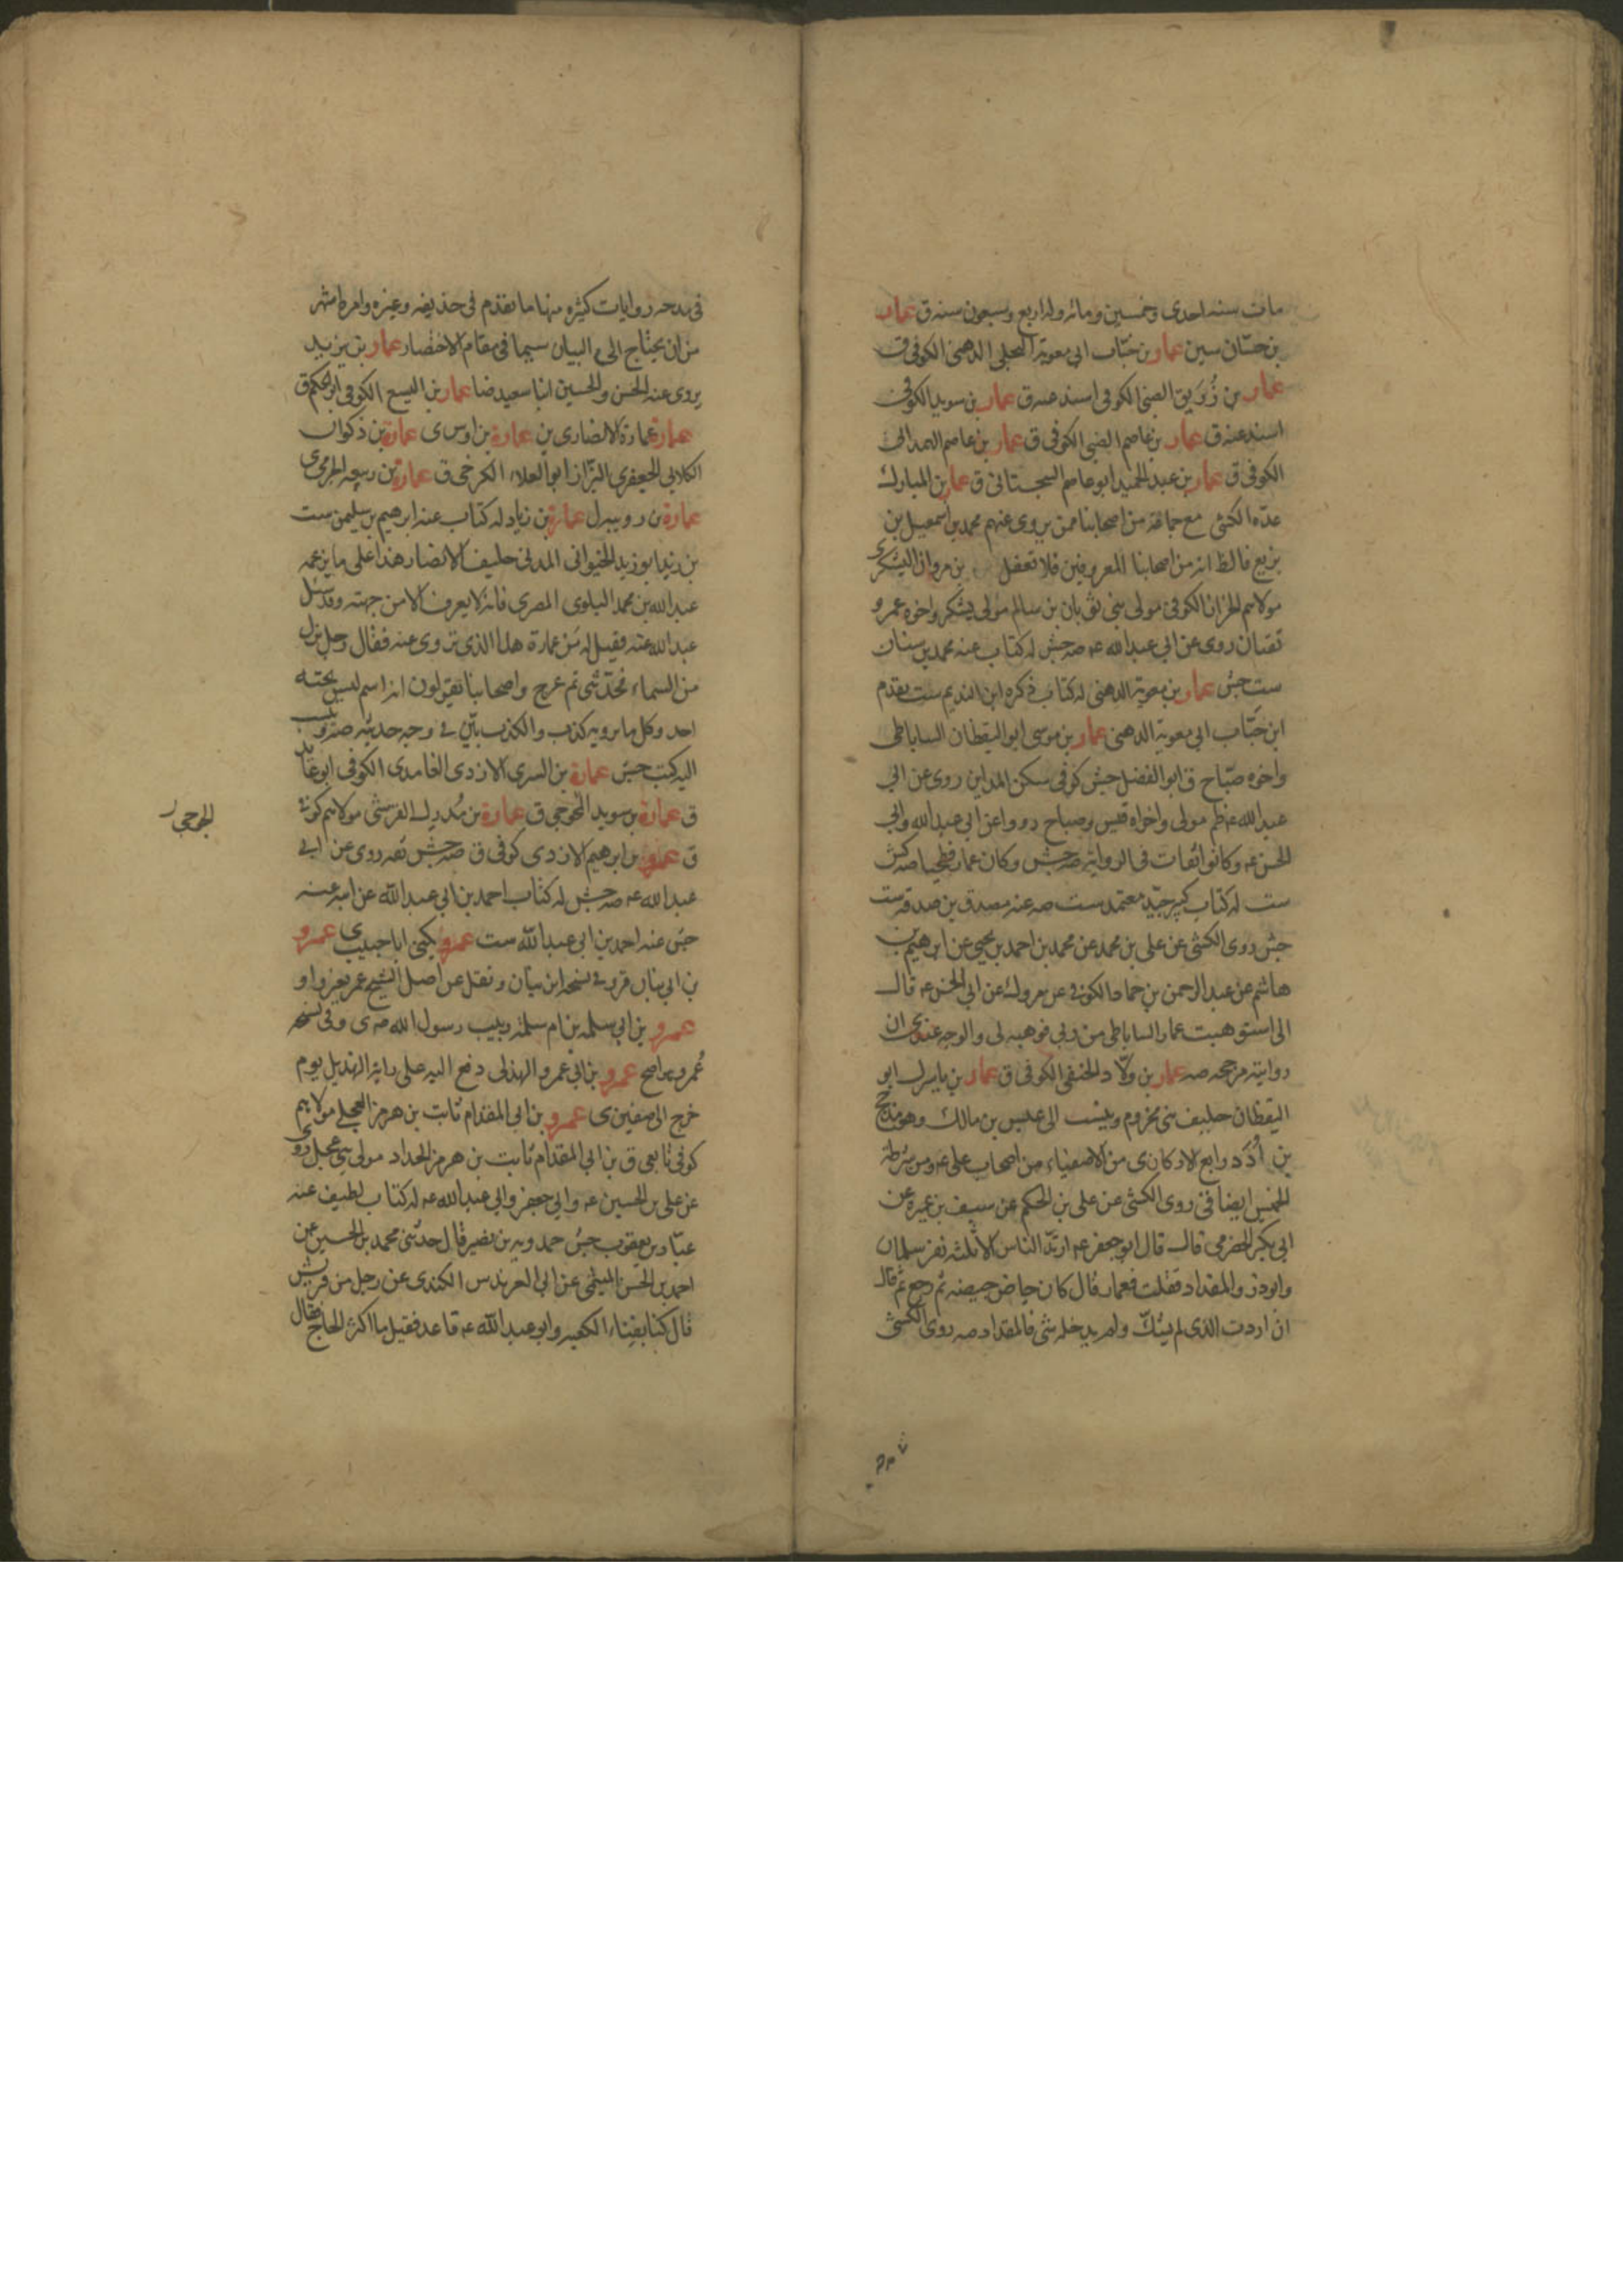 مات سنه احدى وخمسين ومائه وله اربع وسبعون سنه ق عمار
بن حسّان سين عمار بن خبّاب ابى معوية البجلى الدهنى الكوفى ق
عمار بن زُرَيق الضبى الكوفى اسند عنه ق عمار بن سويد الكوفى
اسند عنه ق عمار بن عاصم الضبى الكوفى ق عمار بن عاصم الهمدانى
الكوفى ق عمار بن عبد الحميد ابو عاصم السجستانى ق عمار بن المبارك
عدّه الكشى مع جماعة من اصحابنا ممن يروى عنهم محمد بن اسمعيل بن
بزيع فالظ انه من اصحابنا المعروفين فلا تغفل بن مروان اليشكرى
مولاهم الخزاز الكوفى مولى بنى ثوبان بن سالم مولى يشكر واخوه عمرو
ثقتان روى عن ابى عبد الله عه صه جش له كتاب عنه محمد بن سنان
ست جش عمار بن معوية الدهنى له كتاب ذكره ابن النديم ست تقدم
ابن خَبّاب ابى معوية الدهنى عمار بن موسى ابو اليقظان الساباطى
واخوه صبّاح ق ابو الفضل جش كوفى سكن المداين روى عن ابى
عبد الله عه ظم مولى واخواه قيس وصباح رووا عن ابى عبد الله وابى
الحسن عه وكانوا ثقات فى الرواية صه جش وكان عمار فطحيا صه كش
ست له كتاب كبير جيّد معتمد ست صه عنه مصدق بن صدقه ست
جش روى الكشى عن على بن محمد عن محمد بن احمد بن يحيى عن ابرهيم بن
هاشم عن عبد الرحمن بن حماد الكوفى عن مروك عن ابى الحسن عه قال
انى استوهبت عمار الساباطى من ربى فوهبه لى والوجه عندى ان
روايته مرجحه صه عمار بن ولّاد الحنفى الكوفى ق عمار بن ياسر ل ابو
اليقظان حليف بنى مخزوم وينسب الى عنس بن مالك وهو مذحج
بن اُدَد رابع الاركان ى من الاصفياء من اصحاب على عه ومن شرطة
الخميس ايضا قى روى الكشى عن على بن الحكم عن سيف بن عميرة عن
ابى بكر الحضرمى قال قال ابو جعفر عه ارتدّ الناس الا ثلثه نفر سلمان
وابو ذر والمقداد فقلت فعمار قال كان حاص حيصه ثم رجع ثم قال
ان اردت الذى لم يشكّ ولم يدخله شى فالمقداد صه روى الكشى
فى مدحه روايات كثيره منها ما تقدم فى حذيفه وغيره وامره اشهر
من ان يحتاج الى البيان سيما فى مقام الاختصار عمار بن يزيد
يروى عنه الحسن والحسين ابنا سعيد ضا عمار بن اليسع الكوفى ابو الحكم ق
عمارة عمارة الانصارى ين عمارة بن اوس ى عمارة بن ذكوان
الكلابى الجعفرى البزّاز ابو العلاء الكرخى ق عمارة بن ربيعه الجرمى ى
عمارة بن رويبه ل عمارة بن زياد له كتاب عنه ابرهيم بن سليمن ست
بن زيد ابو زيد الخيوانى المدنى حليف الانصار هذا على ما يزعمه
عبد الله بن محمد البلوى المصرى فانه لا يعرف الا من جهته وقد سئل
عبد الله عنه فقيل له مَن عمارة هذا الذى تروى عنه فقال رجل نزل
من السماء فحدّثنى ثم عرج واصحابنا يقولون انه اسم ليس تحته
احد وكل ما يرويه كذب والكذب بيّن فى وجه حديثه صه وينسب
اليه كتب جش عمارة بن السرى الازدى الغامدى الكوفى ابو عاند
ق عمارة بن سويد النحوجى ق عمارة بن مُدرِك القرشى مولاهم كوفى
الجوجى ر
ق عمرو بن ابرهيم الازدى كوفى ق صه جش ثقه روى عن ابى
عبد الله عه صه جش له كتاب احمد بن ابى عبد الله عن ابيه عنه
جش عنه احمد بن ابى عبد الله ست عمرو يكنى ابا حبيب ى عمرو
بن ابى بنان قر و فى نسخه ابن بيان ونقل عن اصل الشيخ عمر بغير واو
عمرو بن ابى سلمه بن ام سلمه ربيب رسول الله صه ى وفى نسخه
عُمر وهو اصح عمرو بن ابى عمرو الهذلى دفع اليه على راية الهذيل يوم
خرج الى صفين ى عمرو بن ابى المقدام ثابت بن هرمز العجلى مولاهم
كوفى تابعى ق بن ابى المقدام ثابت بن هرمز الحداد مولى بنى عجل روى
عن على بن الحسين عه وابى جعفر وابى عبد الله عه له كتاب لطيف عنه
عبّاد بن يعقوب جش حمدويه بن نصير قال حدثنى محمد بن الحسين عن
احمد بن الحسن الميثمى عن ابى العرندس الكندى عن رجل من قريش
قال كنا بفناء الكعبه وابو عبد الله عه قاعد فقيل ما اكثر الحاج فقال